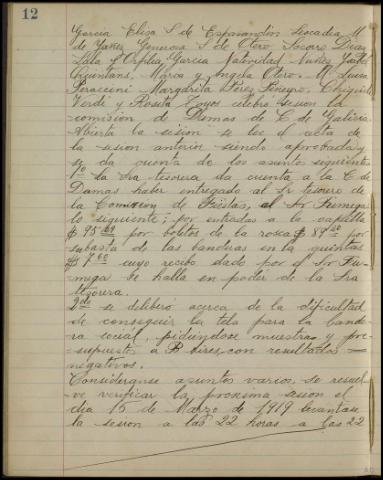 12
Garcia Elisa S de Esparandin Leocadia M
de Yañez Generosa S de Otero, Socorro Diaz
Lala y Orfilia Garcia Natividad Nuñez Isabel
Quintans, Maria y Angela Otero. M Luisa
Peraccini Margarita Peres Pineyro,
Verdi y Rosita celebro sesion la
comision de Damas de C de Galicia
Abierta la sesion se lee el acta de
la sesion anterior siendo aprobada y
se da cuenta de los asuntos siguientes
1º la Sra tesorera da cuenta a la C de
Damas haber entregado al Sr tesorero de
la Comision de Fiestas, al Sr
lo siguiente; por entradas a la capilla
$ 95 por boletos de la rosca $ 89 por
subasta de las banderas en la quintas
$ 7.00 cuyo recibo dado por el Sr
se halla en poder de la Sra
tesorera.
2do se deliberó acerca de la dificultad
de conseguir la tela para la bande
ra social, pidiendose muestras y pre
supuestos a B Aires, con resultados
negativos.
Consideranse asuntos varios, se resuel
ve verificar la proxima sesion el
dia 15 de Marzo de 1919 levantase
la sesion a las 22 horas a las 22